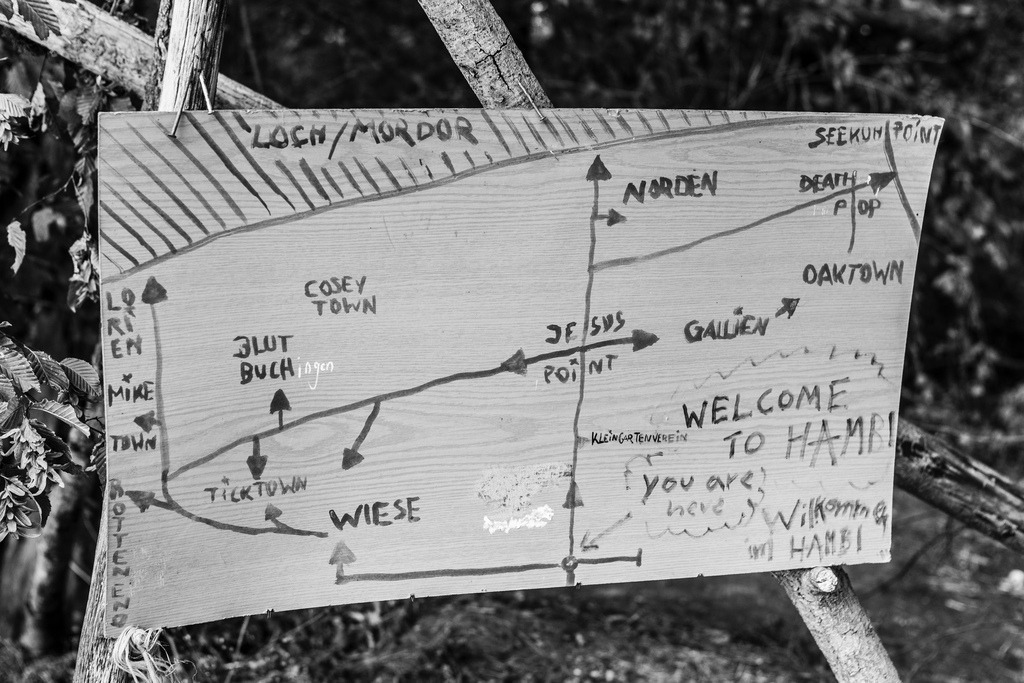 LOCH/MORDOR
SEEKUH POINT
NORDEN
DEATH
PIOP
OAKTOWN
LO
RI
EN
COSEY
TOWN
BLUT
BUCHingen
JESUS
POINT
GALLIEN
MIKE
TOWN
WELCOME
TO HAMBI
KLEINGARTENVEREIN
you are
here
TICKTOWN
WIESE
Willkommen
im HAMBI
ROTTENEND